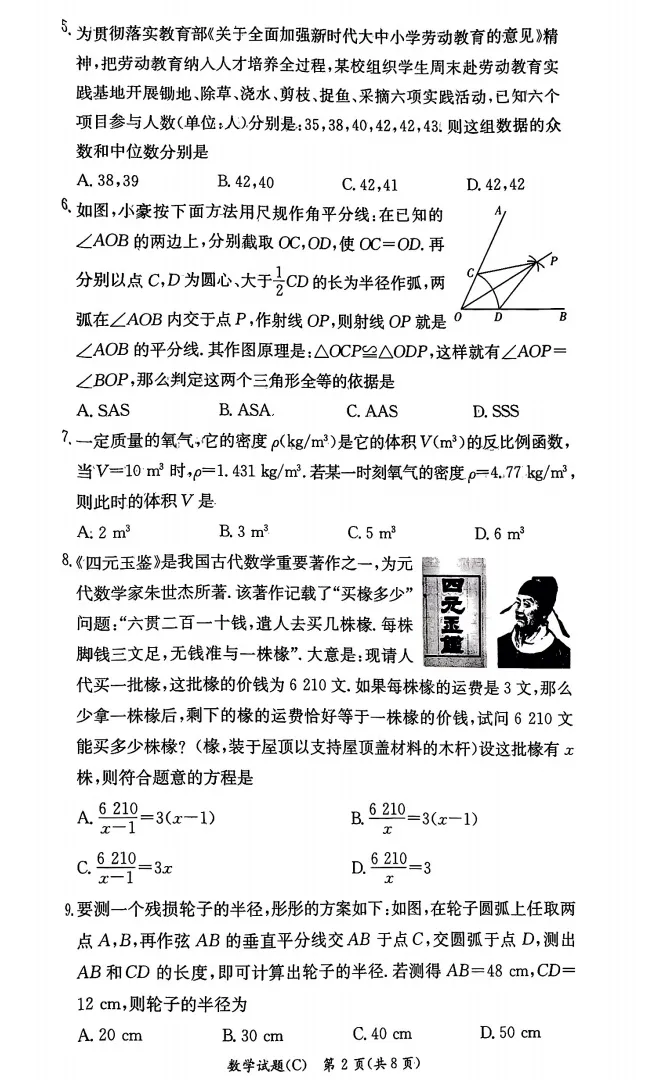 5.为贯彻落实教育部《关于全面加强新时代大中小学劳动教育的意见》精
神,把劳动教育纳入人才培养全过程,某校组织学生周末赴劳动教育实
践基地开展锄地、除草、浇水、剪枝、捉鱼、采摘六项实践活动,已知六个
项目参与人数(单位:人)分别是:35,38,40,42,42,43.则这组数据的众
数和中位数分别是
A. 38,39 B. 42,40 C. 42,41 D. 42,42
6.如图,小豪按下面方法用尺规作角平分线:在已知的
∠AOB的两边上,分别截取OC,OD,使OC=OD.再
分别以点C,D为圆心、大于\frac{1}{2}CD的长为半径作弧,两
弧在∠AOB内交于点P,作射线OP,则射线OP就是
∠AOB的平分线.其作图原理是:△OCP≌△ODP,这样就有∠AOP=
∠BOP,那么判定这两个三角形全等的依据是
A
C
P
O
D
B
A. SAS B. ASA. C. AAS D. SSS
7.一定质量的氧气,它的密度ρ(kg/m³)是它的体积V(m³)的反比例函数,
当V=10 m³时,ρ=1.431 kg/m³.若某一时刻氧气的密度ρ=4.77 kg/m³,
则此时的体积V是
A. 2 m³ B. 3 m³ C. 5 m³ D. 6 m³
8.《四元玉鉴》是我国古代数学重要著作之一,为元
代数学家朱世杰所著.该著作记载了“买椽多少”
问题:“六贯二百一十钱,遣人去买几株椽.每株
脚钱三文足,无钱准与一株椽”.大意是:现请人
代买一批椽,这批椽的价钱为6 210文.如果每株椽的运费是3文,那么
少拿一株椽后,剩下的椽的运费恰好等于一株椽的价钱,试问6 210文
能买多少株椽?(椽,装于屋顶以支持屋顶盖材料的木杆)设这批椽有x
株,则符合题意的方程是
四元玉鑑
A. \frac{6 210}{x-1}=3(x-1) B. \frac{6 210}{x}=3(x-1)
C. \frac{6 210}{x-1}=3x D. \frac{6 210}{x}=3
9.要测一个残损轮子的半径,彤彤的方案如下:如图,在轮子圆弧上任取两
点A,B,再作弦AB的垂直平分线交AB于点C,交圆弧于点D,测出
AB和CD的长度,即可计算出轮子的半径.若测得AB=48 cm,CD=
12 cm,则轮子的半径为
A. 20 cm B. 30 cm C. 40 cm D. 50 cm
数学试题(C) 第2页(共8页)